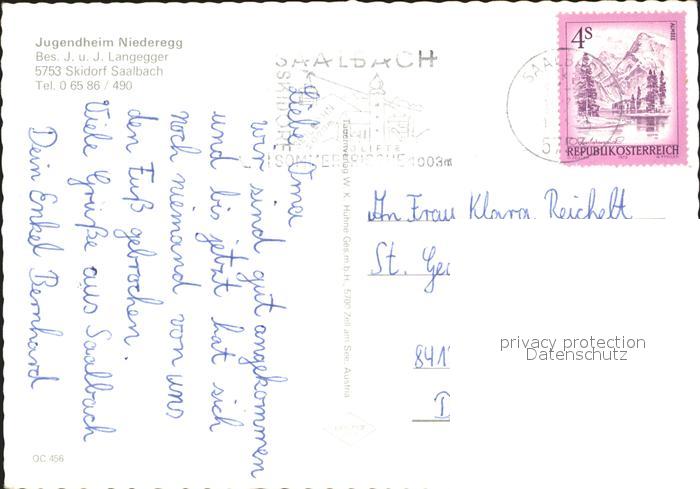 Jugendheim Niederegg
Bes. J. u. J. Langegger
5753 Skidorf Saalbach
Tel. 0 65 86 / 490
Liebe Oma
wir sind gut angekommen
und bis jetzt hat sich
noch niemand von uns
den Fuß gebrochen.
Viele Grüße aus Saalbach
Dein Enkel Bernhard
OC 456
SAALBACH
SKIDORF
LIFTE
SOMMERFRISCHE 1003m
Tauernverlag W. K. Huhne Ges.m.b.H., 5700 Zell am See, Austria
SAALB
57
4S
ALMSEE
REPUBLIK ÖSTERREICH
An Frau Klara Reichelt
St. Ge
841
D
privacy protection
Datenschutz